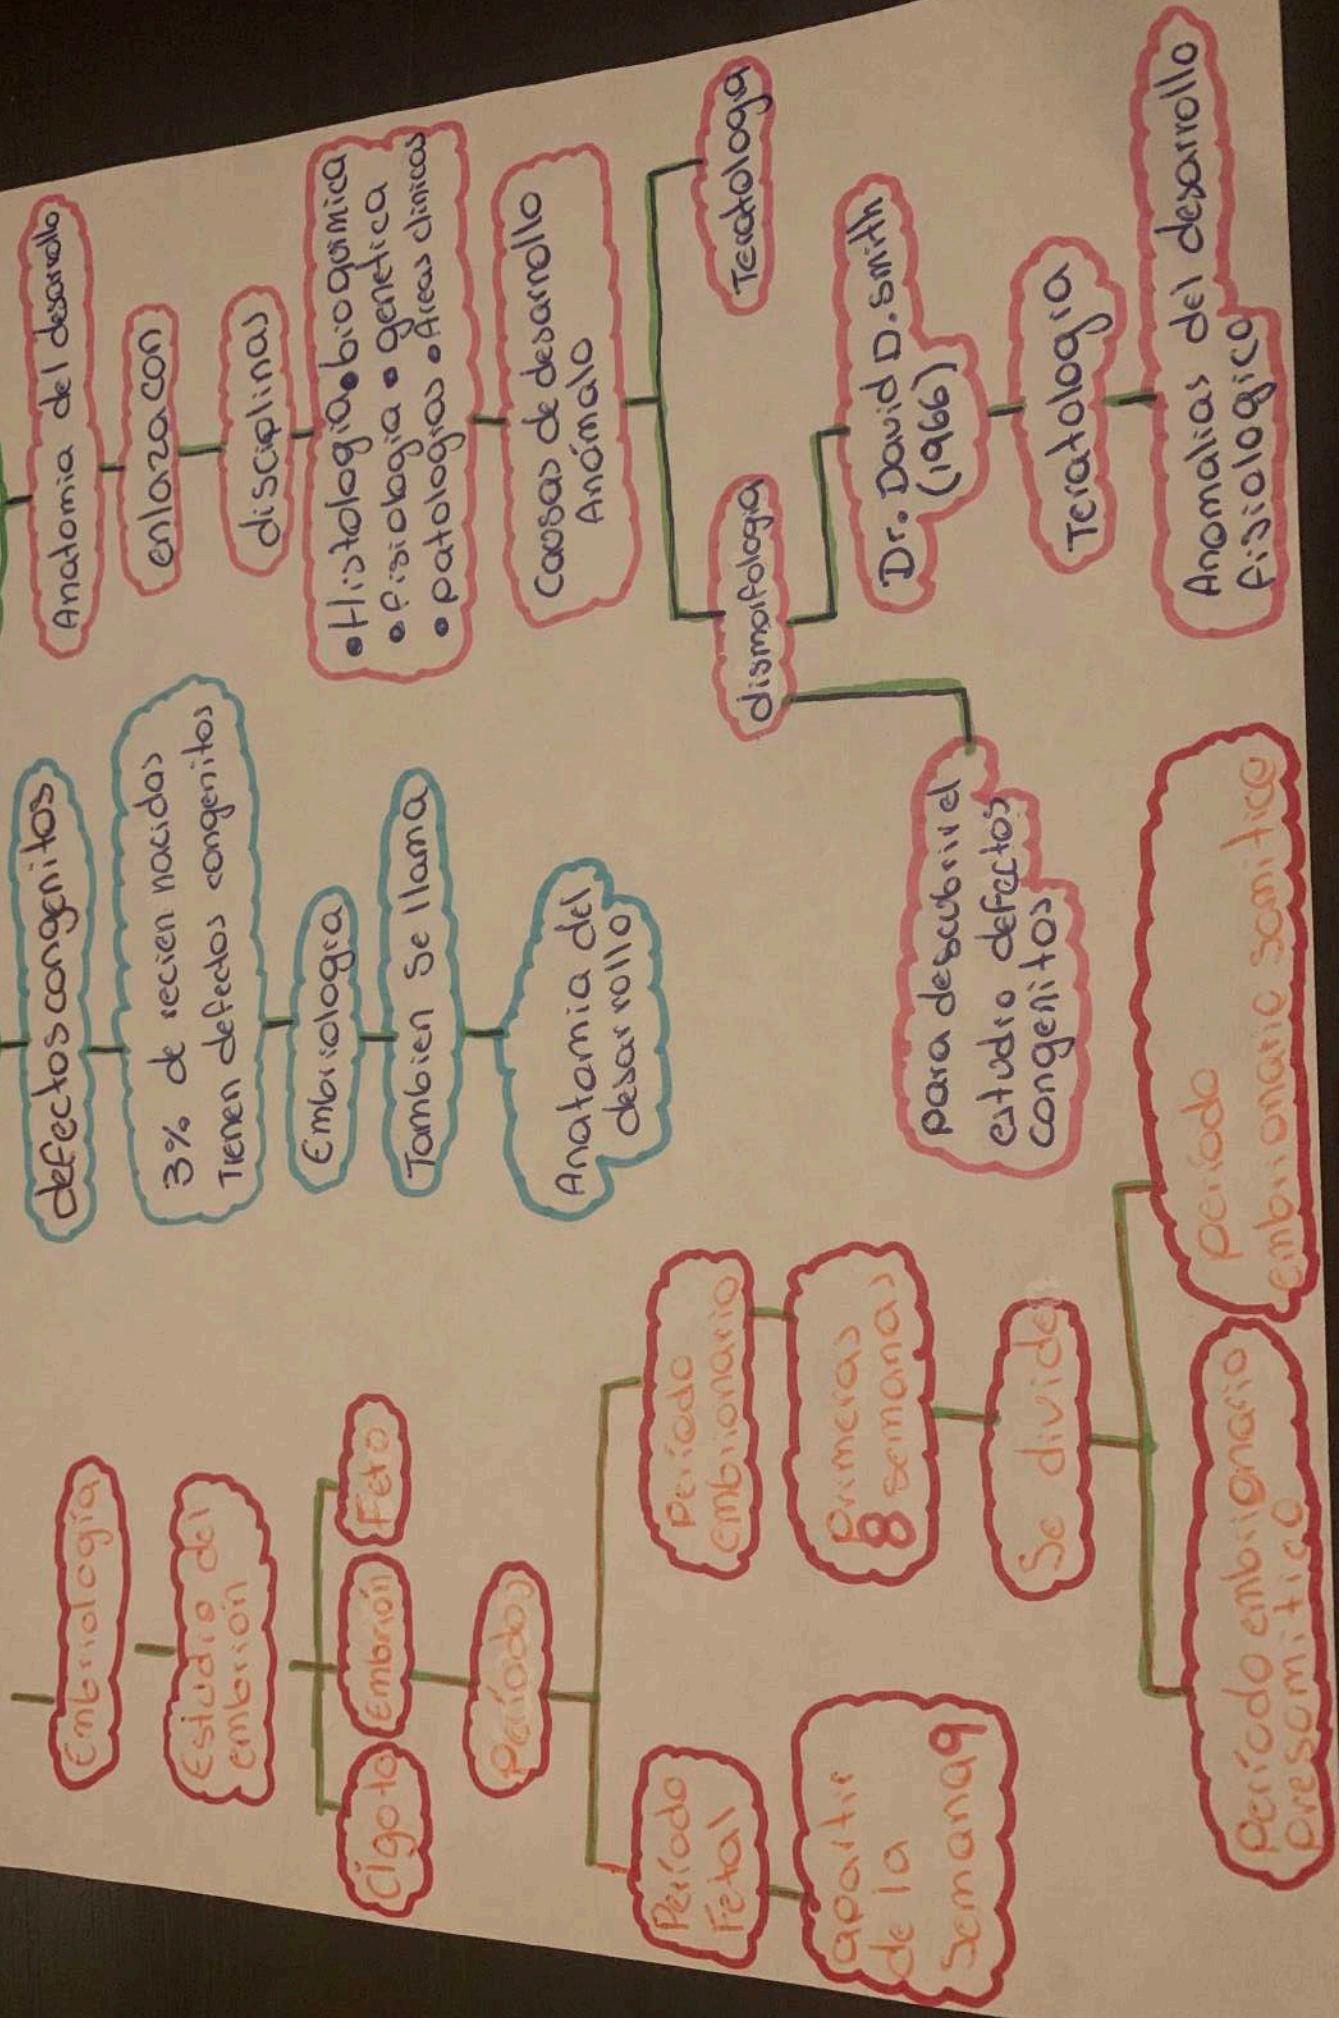 Embriología
Estudio del
embrión
Cigoto
Embrión
Feto
Períodos
Período
Fetal
apartir
de la
semana 9
Período
embrionario
Primeras
8 semanas
Se divide
Período embrionario
presomitico
período
embrionario somitico
defectos congenitos
3% de recien nacidos
Tienen defectos congenitos
Embriologia
Tambien se llama
Anatomia del
desarrollo
Anatomia del desarrollo
enlaza con
disciplinas
• Histologia • bioquimica
• fisiologia • genetica
• patologias • Areas clinicas
Causas de desarrollo
Anómalo
dismorfologia
Teratologia
para descubrir el
estudio defectos
congenitos
Dr. David D. Smith
(1966)
Teratologia
Anomalias del desarrollo
fisiologico